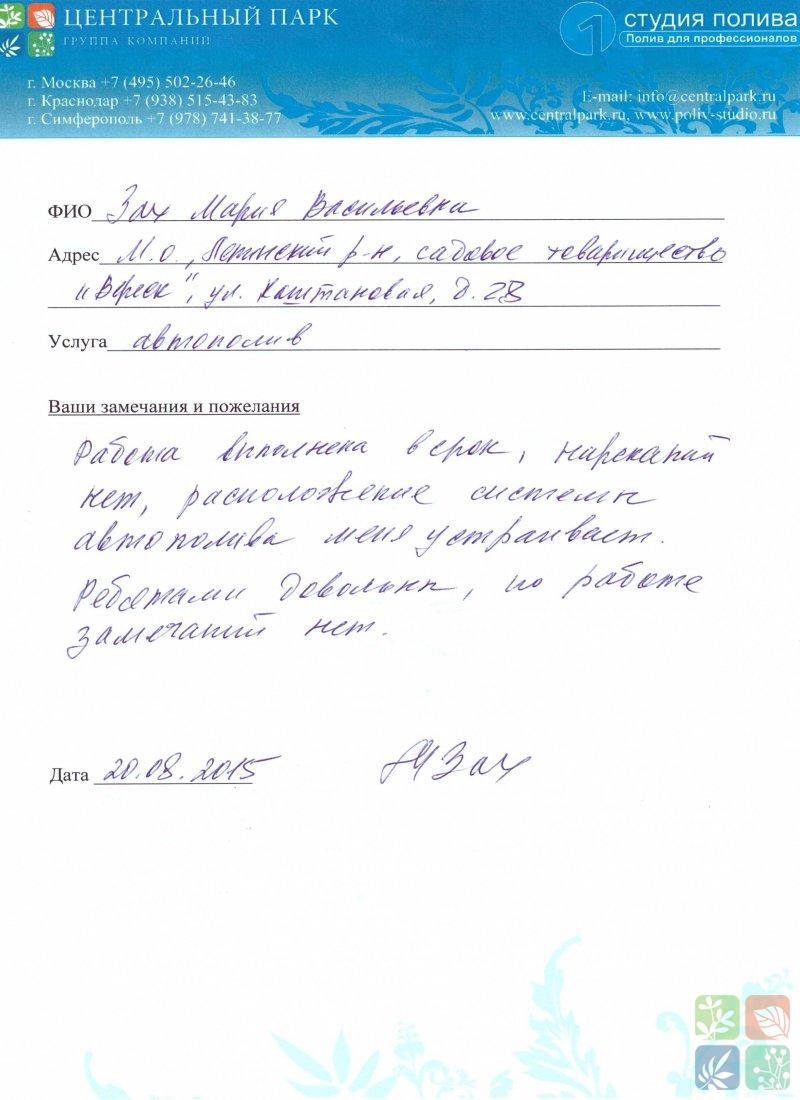 ЦЕНТРАЛЬНЫЙ ПАРК
ГРУППА КОМПАНИЙ
1 студия полива
Полив для профессионалов
г. Москва +7 (495) 502-26-46
г. Краснодар +7 (938) 515-43-83
г. Симферополь +7 (978) 741-38-77
E-mail: info@centralpark.ru
www.centralpark.ru, www.poliv-studio.ru
ФИО Зах Мария Васильевна
Адрес М.о., Ленинский р-н, садовое товарищество
"Вереск", ул. Каштановая, д. 28
Услуга автополив
Ваши замечания и пожелания
Работа выполнена в срок, нареканий
нет, расположение системы
автополива меня устраивает.
Ребятами довольны, по работе
замечаний нет.
Дата 20.08.2015 МЗах